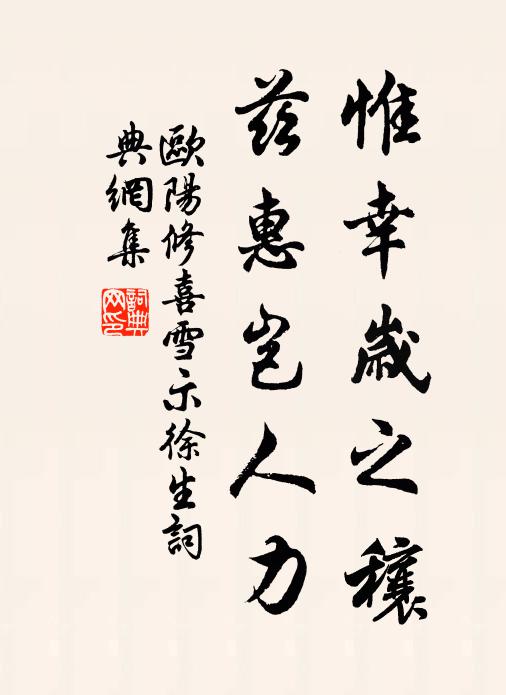 惟幸歲之穰
茲惠豈人力
歐陽修喜雪示徐生詞
典網集
詞典
网印